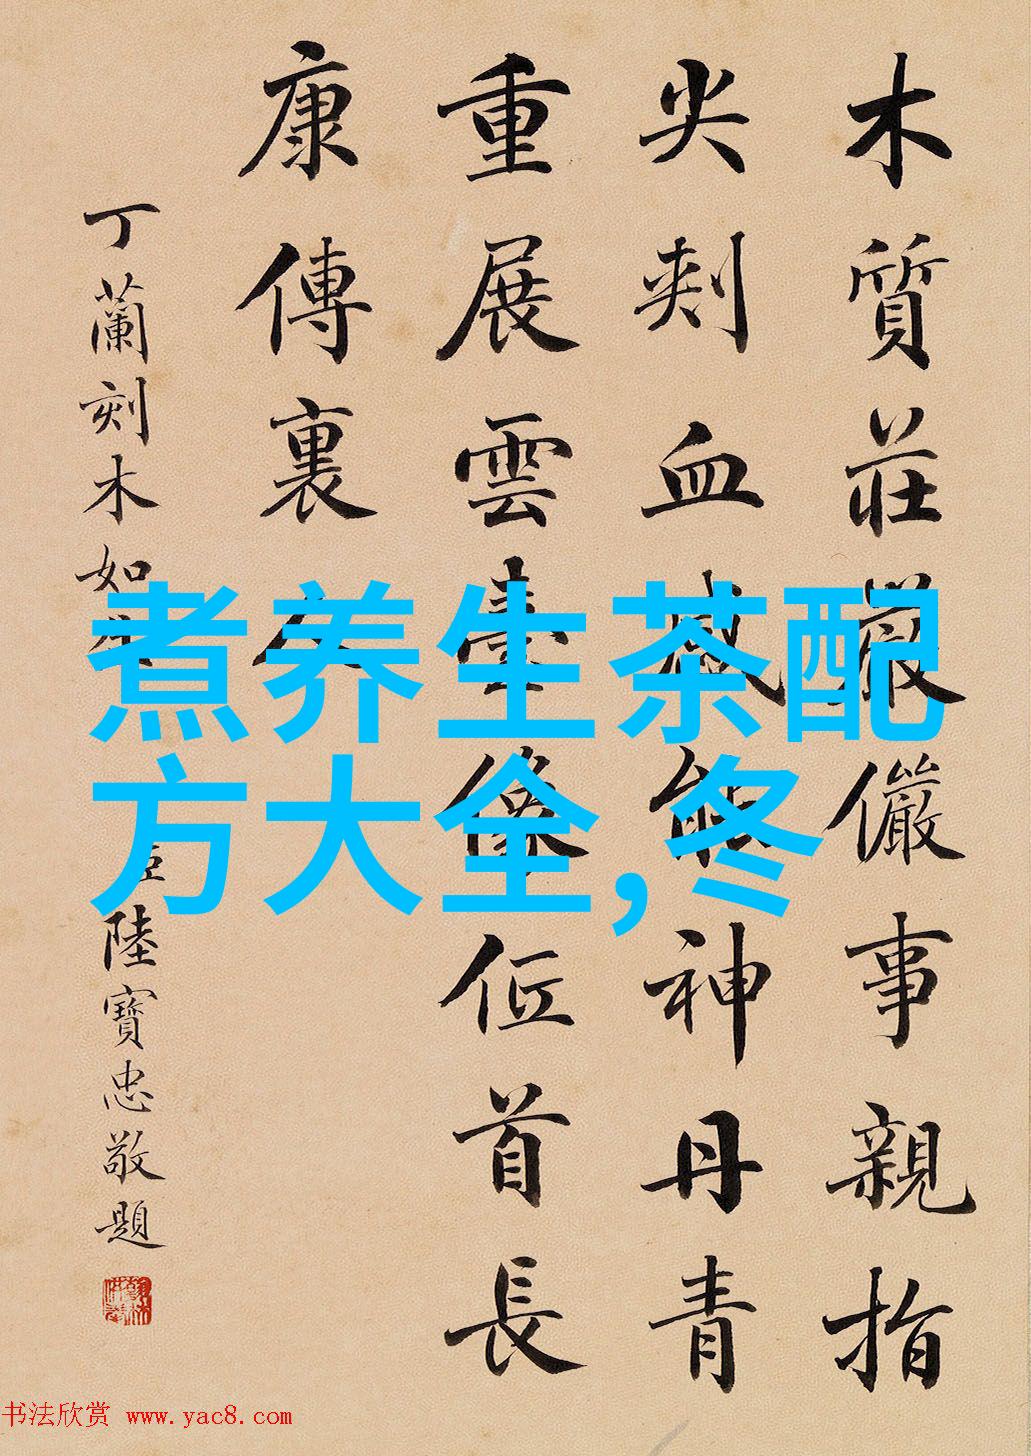 木質莊嚴儼事親指
尖刾血感能神丹青
重展雲臺像位首長
康傳裏人
丁蘭刻木如生
臣陸寶忠敬題
煮养生茶配
方大全,冬
书法欣赏 www.yac8.com